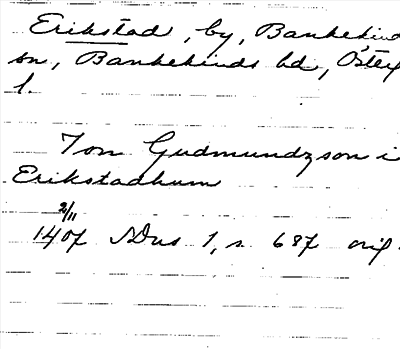 Erikstad, by, Bankekind
sn, Bankekinds hd, Österg
l.
Jon Gudmundzson i
Erikstadhum
2/11
1407 SDns 1, s. 687 orig.